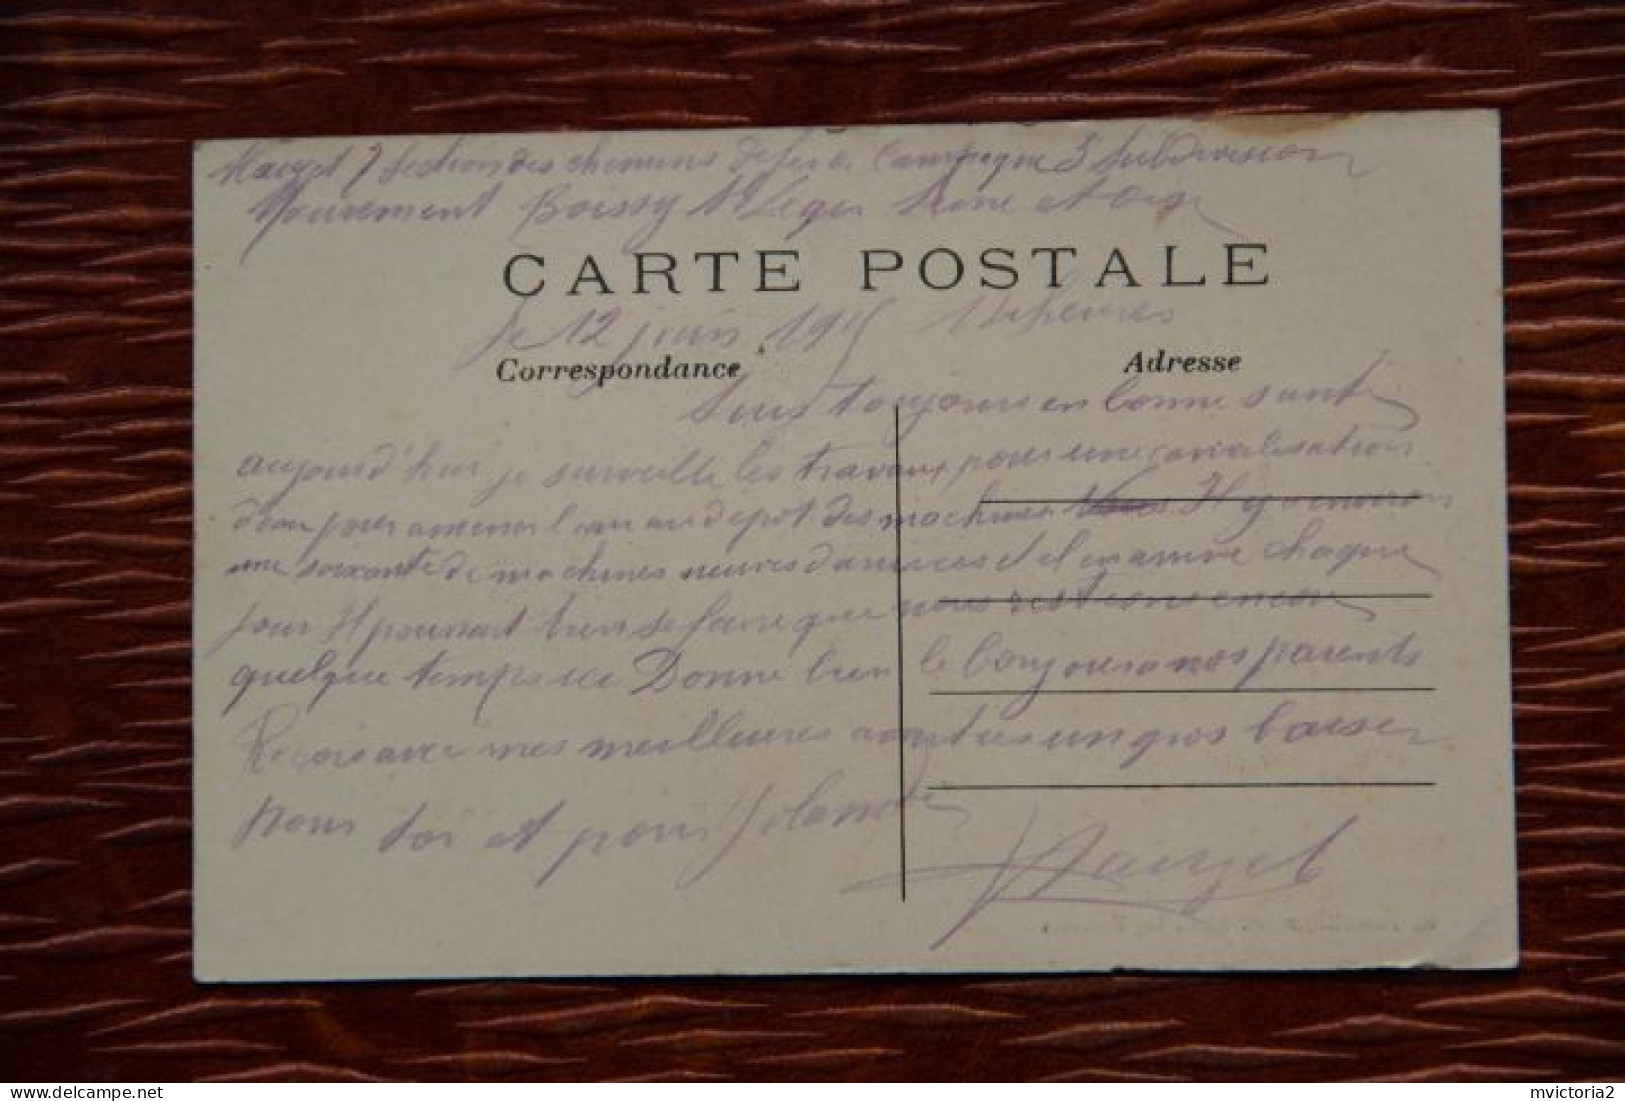 Maryet 7 Section des chemins de fer de Campagne 3 Subdivision
Mouvement Boissy St Leger Seine et Oise
CARTE POSTALE
Le 12 juin 1915 heures
Correspondance
Adresse
Suis toujours en bonne santé
aujourd'hui je surveille les travaux pour une canalisation
d'eau pour amener l'eau au depot des machines Il y a environ
une soixante de machines neuves et il en arrive chaque
jour Il pourrait bien se faire que nous restions encore
quelque temps ici Donne bien le bonjour a nos parents
Reçois avec mes meilleures un gros baiser
pour toi et pour Yolande
Maryet
mvictoria2